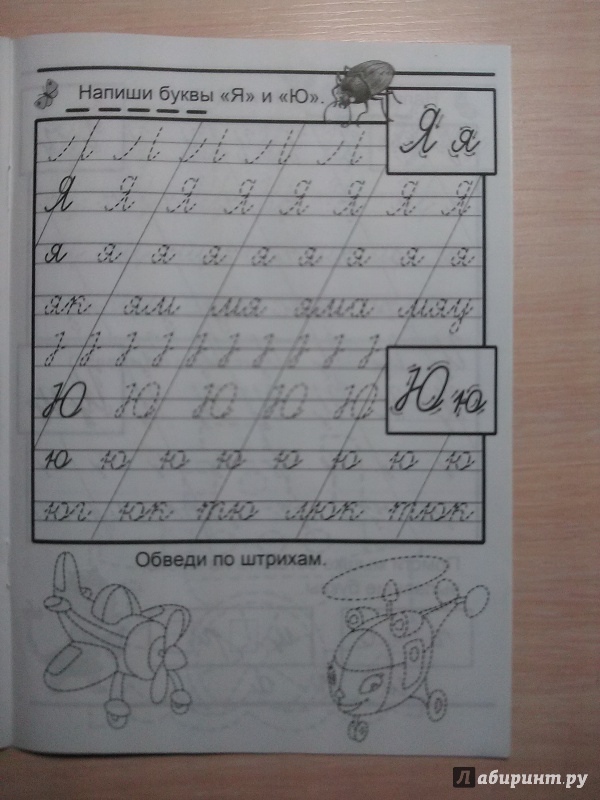 Напиши буквы «Я» и «Ю».
Я я
Я Я Я Я Я Я Я Я
я я я я я я я я я
як ям мя яма мяу
Ю ю
Ю Ю Ю Ю Ю
ю ю ю ю ю ю ю ю
юг юк тю люк тюк
Обведи по штрихам.
Лабиринт.ру